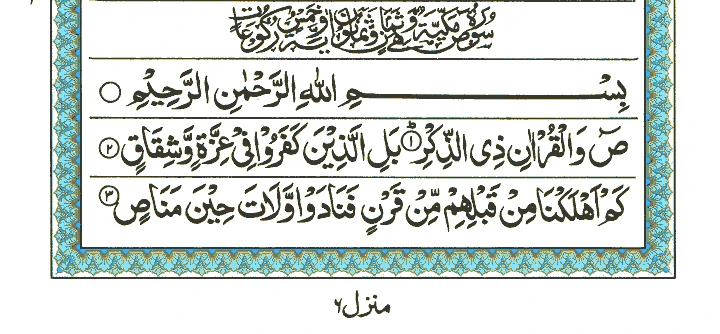 سورة ص مكية وهي ثمان وثمانون آية وخمس ركوعات
بِسْمِ اللّٰهِ الرَّحْمٰنِ الرَّحِيْمِ ○
صٓ وَالْقُرْاٰنِ ذِى الذِّكْرِؕ‏﴿۱﴾ بَلِ الَّذِيْنَ كَفَرُوْا فِىْ عِزَّةٍ وَّشِقَاقٍ ﴿۲﴾
كَمْ اَهْلَكْنَا مِنْ قَبْلِهِمْ مِّنْ قَرْنٍ فَنَادَوْا وَّلَاتَ حِيْنَ مَنَاصٍ ﴿۳﴾
منزل ۶